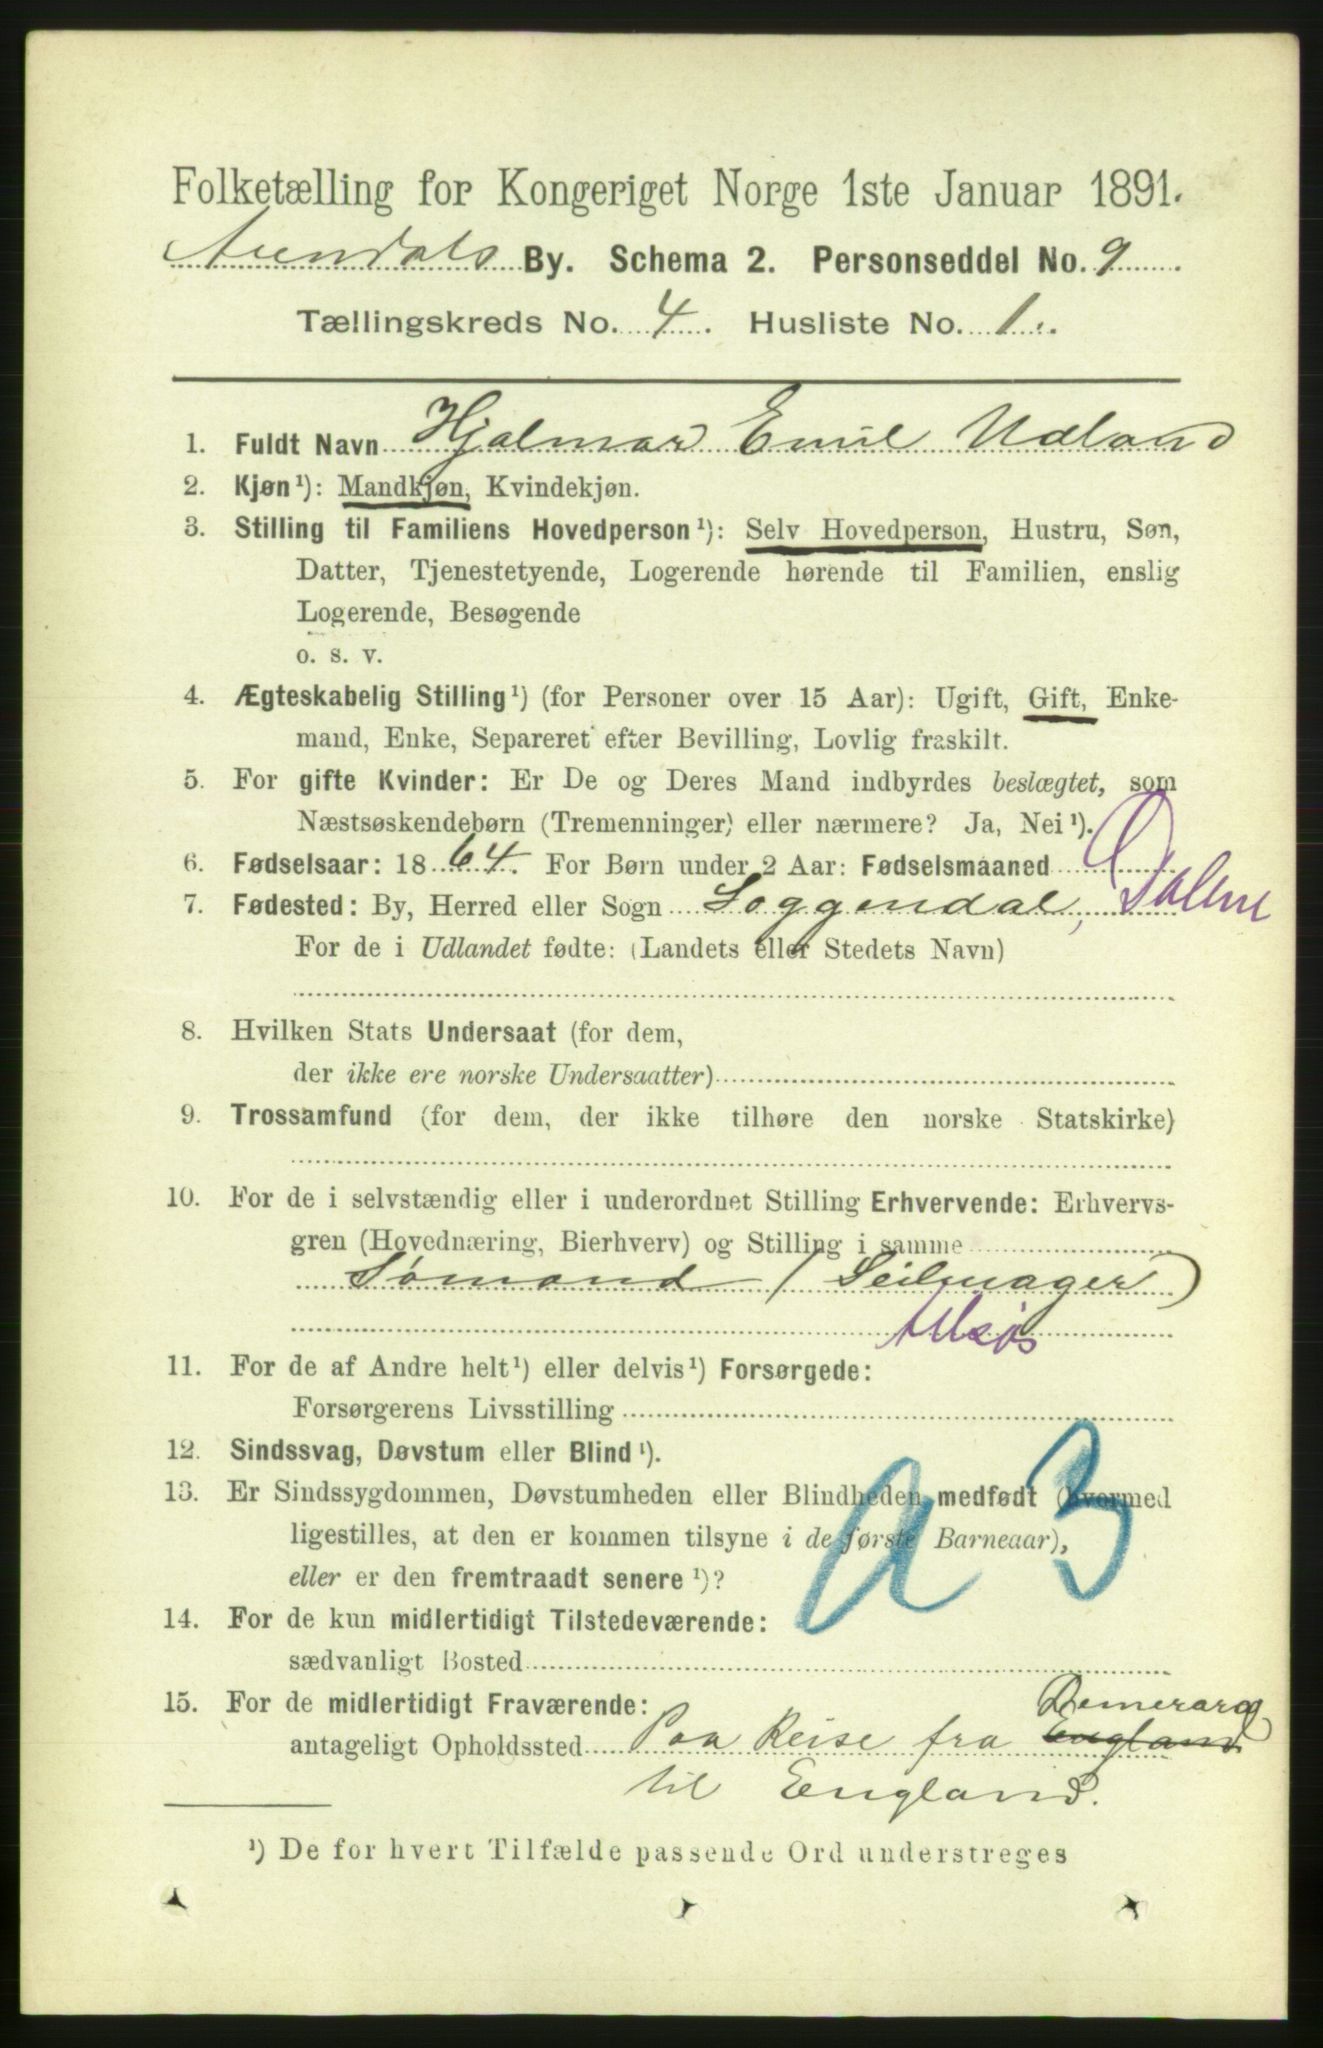 Folketælling for Kongeriget Norge 1ste Januar 1891.
Arendals By. Schema 2. Personseddel No. 9
Tællingskreds No. 4. Husliste No. 1.
1. Fuldt Navn Hjalmar Emil Udland
2. Kjøn ¹): Mandkjøn, Kvindekjøn.
3. Stilling til Familiens Hovedperson ¹): Selv Hovedperson, Hustru, Søn,
Datter, Tjenestetyende, Logerende hørende til Familien, enslig
Logerende, Besøgende
o. s. v.
4. Ægteskabelig Stilling ¹) (for Personer over 15 Aar): Ugift, Gift, Enke-
mand, Enke, Separeret efter Bevilling, Lovlig fraskilt.
5. For gifte Kvinder: Er De og Deres Mand indbyrdes beslægtet, som
Næstsøskendebørn (Tremenninger) eller nærmere? Ja, Nei ¹).
6. Fødselsaar: 1864. For Børn under 2 Aar: Fødselsmaaned
7. Fødested: By, Herred eller Sogn Soggendal, Dalene
For de i Udlandet fødte: (Landets eller Stedets Navn)
8. Hvilken Stats Undersaat (for dem,
der ikke ere norske Undersaatter)
9. Trossamfund (for dem, der ikke tilhøre den norske Statskirke)
10. For de i selvstændig eller i underordnet Stilling Erhvervende: Erhvervs-
gren (Hovednæring, Bierhverv) og Stilling i samme
Sømand (Seilmager)
11. For de af Andre helt ¹) eller delvis ¹) Forsørgede:
Forsørgerens Livsstilling
12. Sindssvag, Døvstum eller Blind ¹).
13. Er Sindssygdommen, Døvstumheden eller Blindheden medfødt (hvormed
ligestilles, at den er kommen tilsyne i de første Barneaar),
eller er den fremtraadt senere ¹)?
14. For de kun midlertidigt Tilstedeværende:
sædvanligt Bosted
15. For de midlertidigt Fraværende: Demerara
antageligt Opholdssted Paa Reise fra England
til England.
¹) De for hvert Tilfælde passende Ord understreges